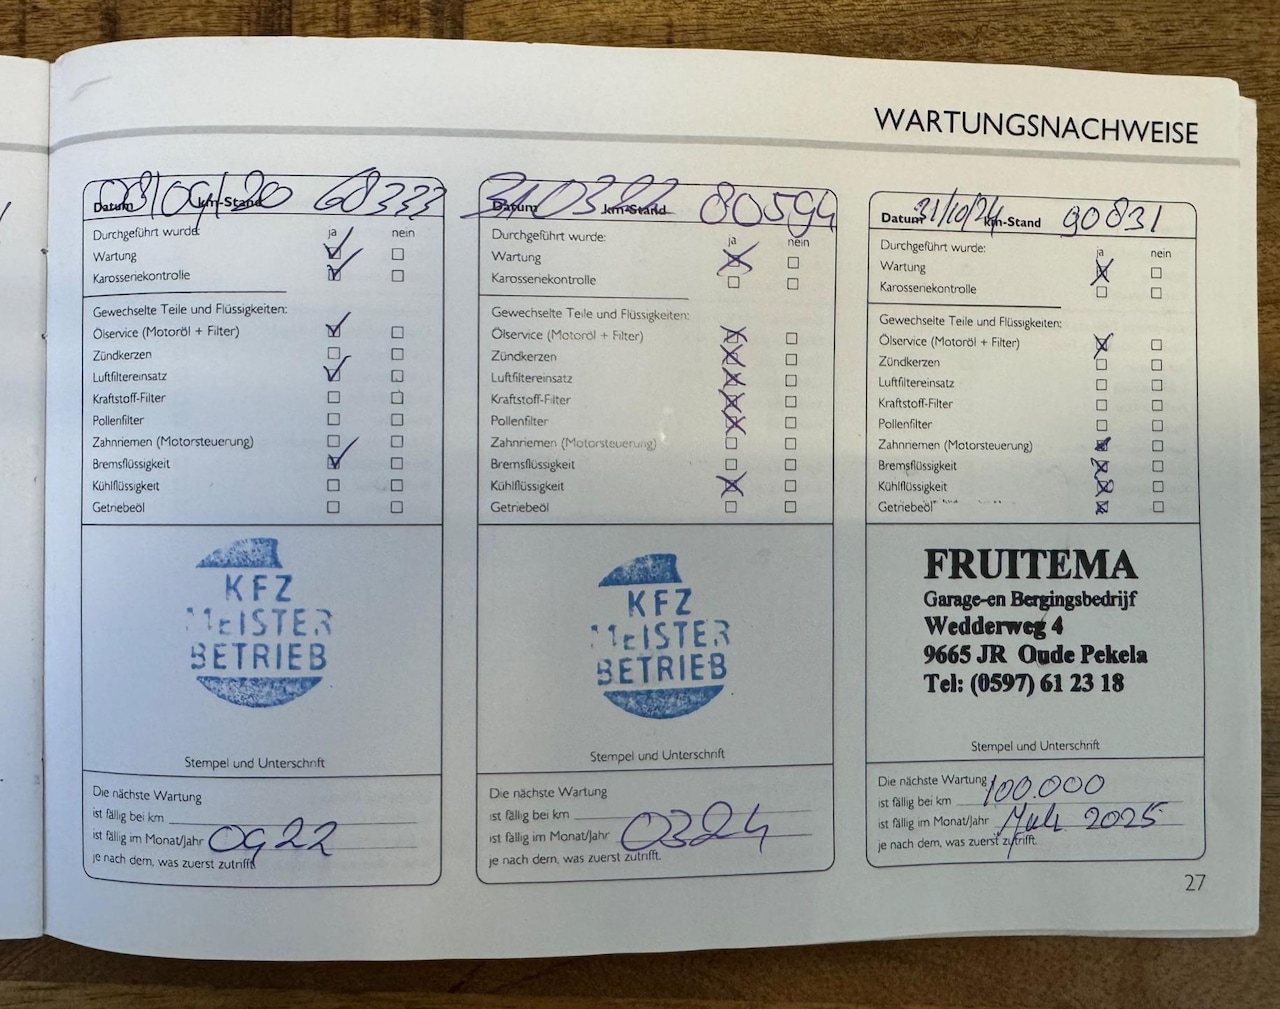 WARTUNGSNACHWEISE
Datum 08/09/20 km-Stand 68333
Durchgeführt wurde: ja nein
Wartung
Karosseriekontrolle
Gewechselte Teile und Flüssigkeiten:
Ölservice (Motoröl + Filter)
Zündkerzen
Luftfiltereinsatz
Kraftstoff-Filter
Pollenfilter
Zahnriemen (Motorsteuerung)
Bremsflüssigkeit
Kühlflüssigkeit
Getriebeöl
KFZ
MEISTER
BETRIEB
Stempel und Unterschrift
Die nächste Wartung
ist fällig bei km
ist fällig im Monat/Jahr 0922
je nach dem, was zuerst zutrifft.
Datum 31.03.22 km-Stand 80594
Durchgeführt wurde: ja nein
Wartung
Karosseriekontrolle
Gewechselte Teile und Flüssigkeiten:
Ölservice (Motoröl + Filter)
Zündkerzen
Luftfiltereinsatz
Kraftstoff-Filter
Pollenfilter
Zahnriemen (Motorsteuerung)
Bremsflüssigkeit
Kühlflüssigkeit
Getriebeöl
KFZ
MEISTER
BETRIEB
Stempel und Unterschrift
Die nächste Wartung
ist fällig bei km
ist fällig im Monat/Jahr 0324
je nach dem, was zuerst zutrifft.
Datum 31/10/24 km-Stand 90831
Durchgeführt wurde: ja nein
Wartung
Karosseriekontrolle
Gewechselte Teile und Flüssigkeiten:
Ölservice (Motoröl + Filter)
Zündkerzen
Luftfiltereinsatz
Kraftstoff-Filter
Pollenfilter
Zahnriemen (Motorsteuerung)
Bremsflüssigkeit
Kühlflüssigkeit
Getriebeöl
FRUITEMA
Garage-en Bergingsbedrijf
Wedderweg 4
9665 JR Oude Pekela
Tel: (0597) 61 23 18
Stempel und Unterschrift
Die nächste Wartung
ist fällig bei km 100.000
ist fällig im Monat/Jahr 2025
je nach dem, was zuerst zutrifft.
27